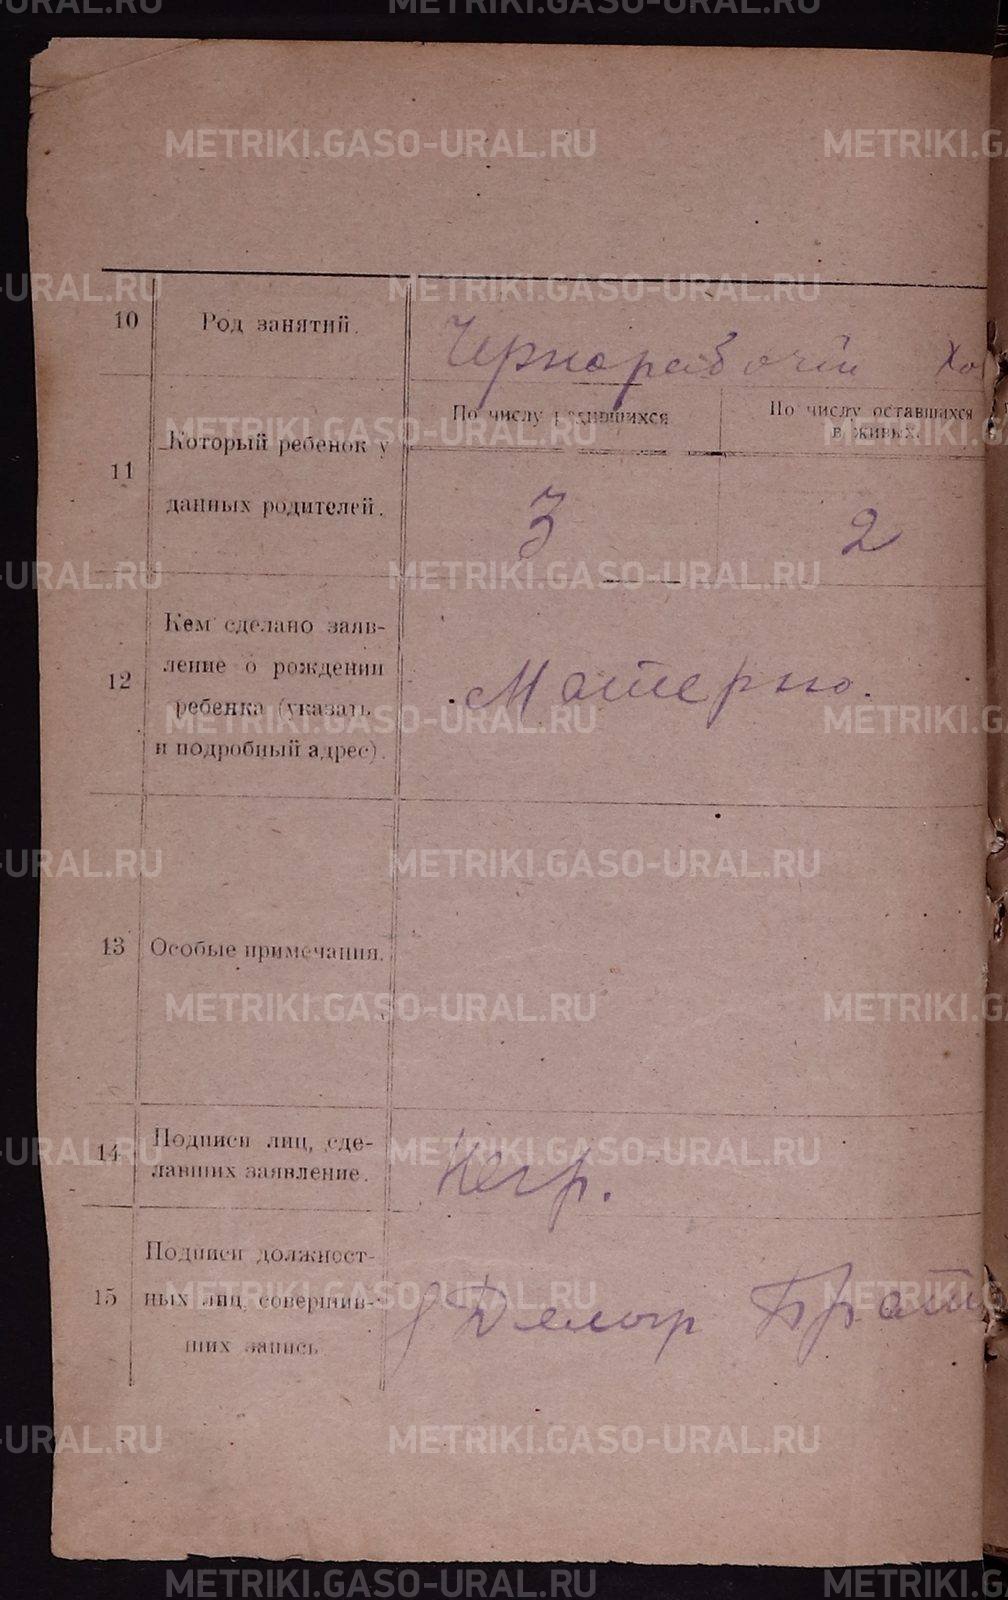 10 Род занятий. Чернорабочий Хо
11 Который ребенок у данных родителей.
По числу родившихся
По числу оставшихся в живых.
3
2
12 Кем сделано заяв-
ление о рождении
ребенка (указать
и подробный адрес).
Матерью.
13 Особые примечания.
14 Подписи лиц, сде-
лавших заявление.
Негр.
15 Подписи должност-
ных лиц, совершив-
ших запись
Делопр
METRIKI.GASO-URAL.RU